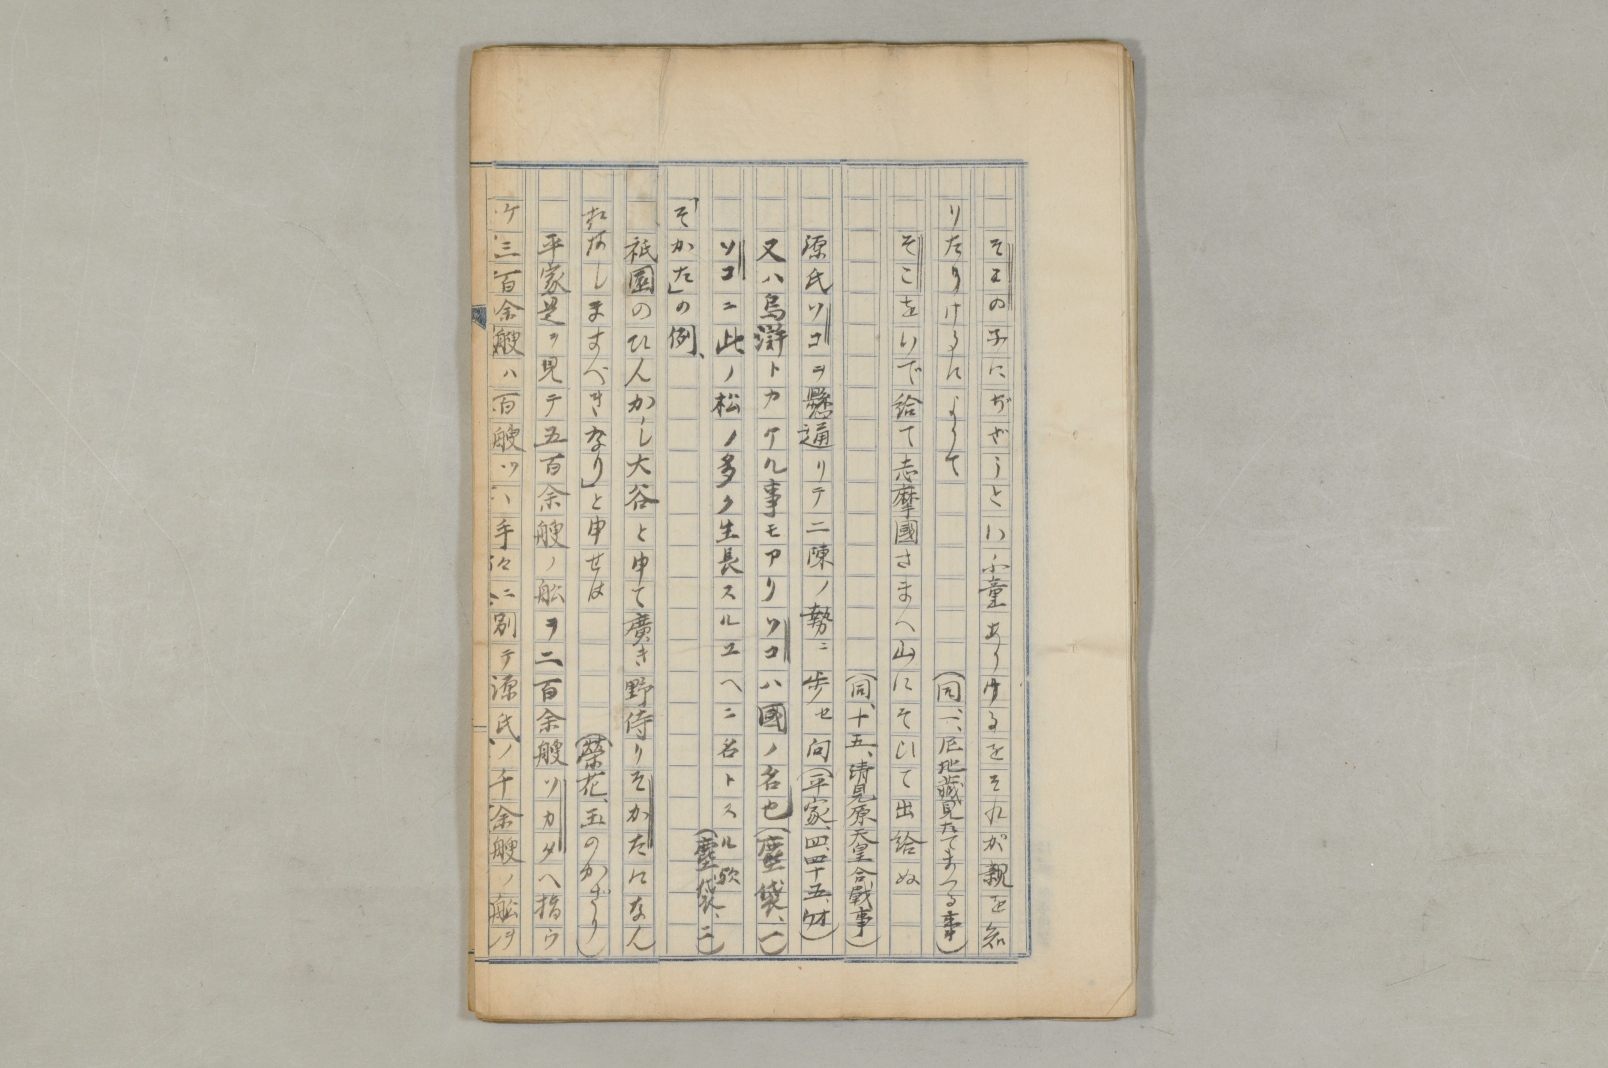 そこの子にぢざうといふ童ありけるをそれが親を知
りたりけるによりて
（同、一、尼地蔵見たてまつる事）
そこをいで給て志摩國さまへ山にそひて出給ぬ
（同、十五、清見原天皇合戰事）
源氏ソコヲ懸通リテ二陳ノ勢ニ歩セ向（平家、四、四十五、ウオ）
又ハ烏滸トカケル事モアリソコハ國ノ名也（塵袋、一）
ソコニ此ノ松ノ多ク生長スルユヘニ名トスル歟（塵袋、二）
「そかた」の例、
祇園のひんかし大谷と申て廣き野侍りそかたになん
おはしますべきなり」と申せは
（榮花、玉のかざり）
平家是ヲ見テ五百余艘ノ舩ヲ二百余艘ソカタヘ指ウ
ケ三百余艘ハ百艘ツヽ手々ニ別テ源氏ノ千余艘ノ舩ヲ